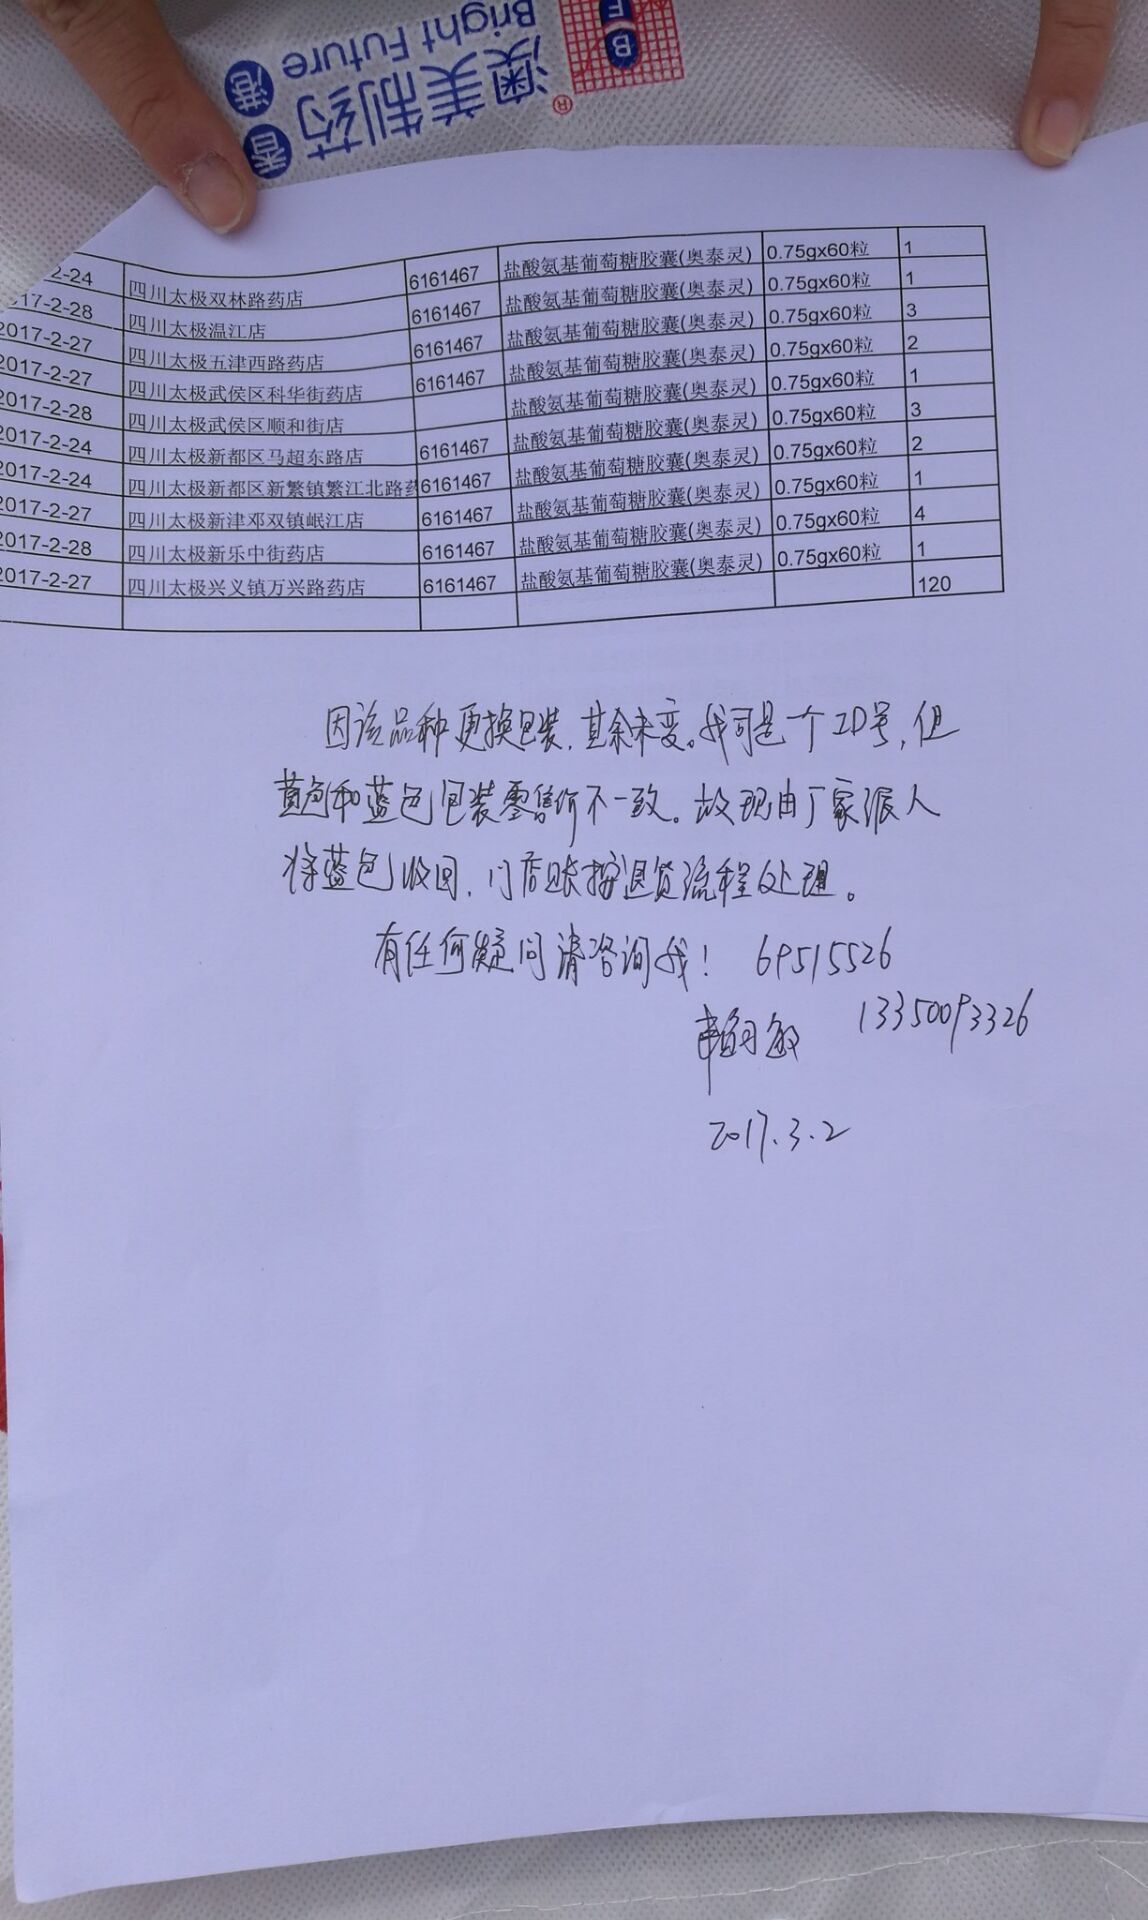 香港 澳美制药 ®
Bright Future
B F
2-24 四川太极双林路药店 6161467 盐酸氨基葡萄糖胶囊(奥泰灵) 0.75gx60粒 1
17-2-28 四川太极温江店 6161467 盐酸氨基葡萄糖胶囊(奥泰灵) 0.75gx60粒 1
2017-2-27 四川太极五津西路药店 6161467 盐酸氨基葡萄糖胶囊(奥泰灵) 0.75gx60粒 3
2017-2-27 四川太极武侯区科华街药店 6161467 盐酸氨基葡萄糖胶囊(奥泰灵) 0.75gx60粒 2
2017-2-28 四川太极武侯区顺和街店 盐酸氨基葡萄糖胶囊(奥泰灵) 0.75gx60粒 1
2017-2-24 四川太极新都区马超东路店 6161467 盐酸氨基葡萄糖胶囊(奥泰灵) 0.75gx60粒 3
2017-2-24 四川太极新都区新繁镇繁江北路药 6161467 盐酸氨基葡萄糖胶囊(奥泰灵) 0.75gx60粒 2
2017-2-27 四川太极新津邓双镇岷江店 6161467 盐酸氨基葡萄糖胶囊(奥泰灵) 0.75gx60粒 1
2017-2-28 四川太极新乐中街药店 6161467 盐酸氨基葡萄糖胶囊(奥泰灵) 0.75gx60粒 4
2017-2-27 四川太极兴义镇万兴路药店 6161467 盐酸氨基葡萄糖胶囊(奥泰灵) 0.75gx60粒 1
120
因该品种更换包装,其余未变。我司是一个ID号,但
黄色和蓝色包装零售价不一致。故现由厂家派人
将蓝色收回,门店账按退货流程处理。
有任何疑问请咨询我! 69515526
13350093326
2017.3.2